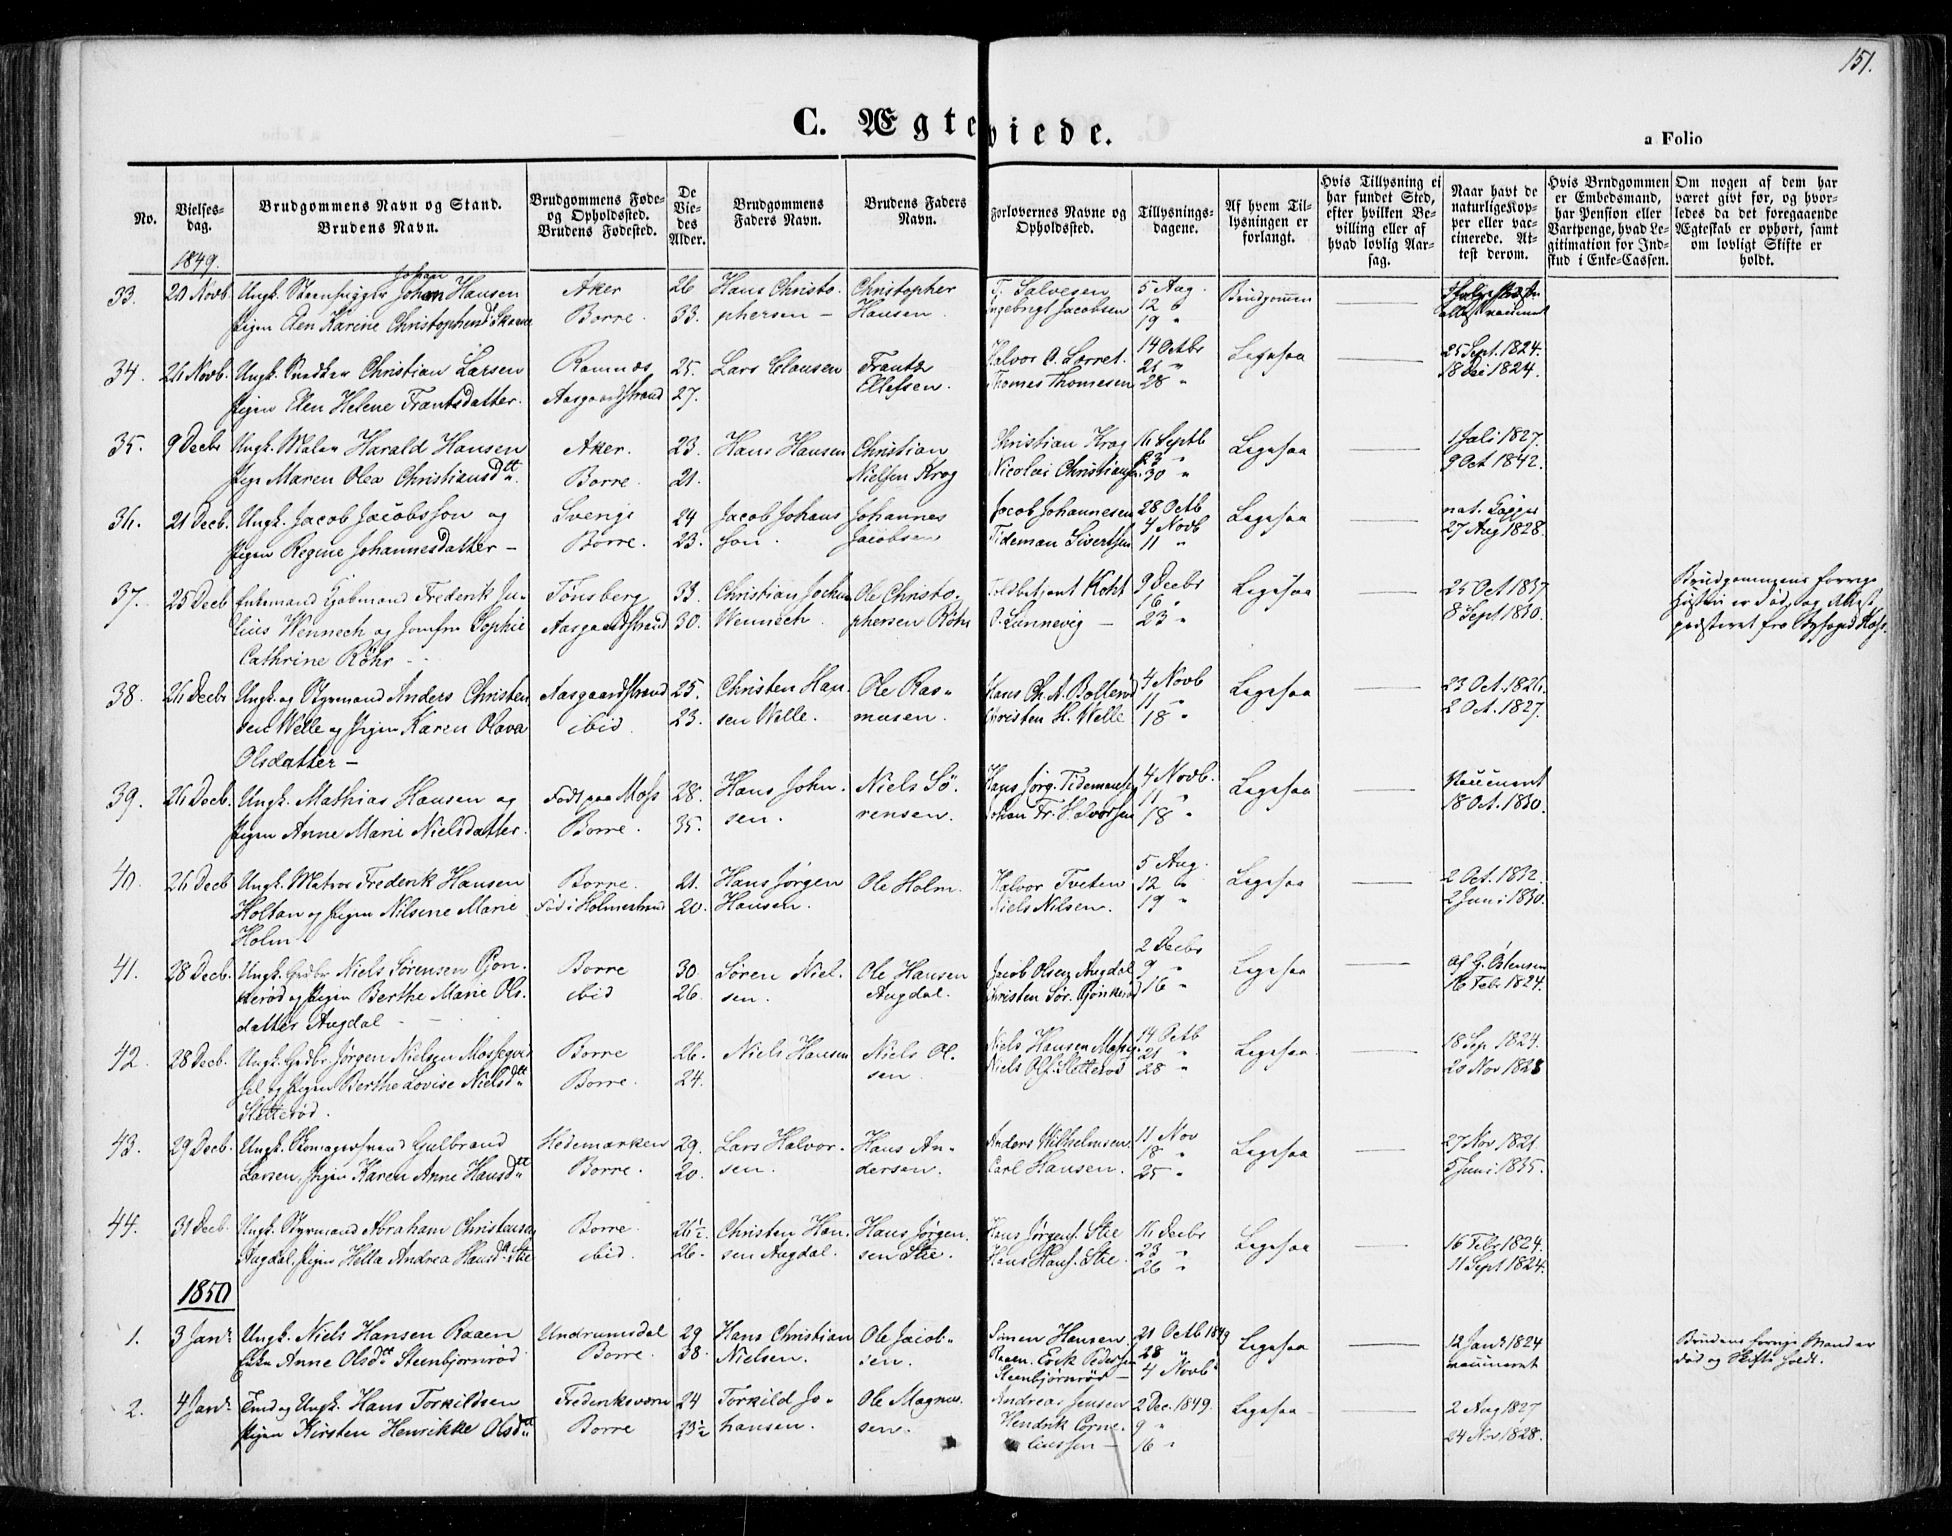 151.
C. Ægteviede.
a Folio
No.
Vielsesdag.
Brudgommens Navn og Stand. Brudens Navn.
Brudgommens Føde- og Opholdssted. Brudens Fødested.
De Viedes Alder.
Brudgommens Faders Navn.
Brudens Faders Navn.
Forlovernes Navne og Opholdssted.
Tillysningsdagene.
Af hvem Tillysningen er forlangt.
Hvis Tillysning ei har fundet Sted, efter hvilken Bevilling eller af hvad lovlig Aarsag.
Naar havt de naturlige Kopper eller vaccinerede. Attest derom.
Hvis Brudgommen er Embedsmand, har Pension eller Vartpenge, hvad Legitimation for Indskud i Enke-Cassen.
Om nogen af dem har været givt før, og hvorledes da det foregaaende Ægteskab er ophørt, samt om lovligt Skifte er holdt.
1849.
33. Novb. Ungk. Johan Hansen Aker 26 Hans Christo- Christopher T. Salvesen 5 Aug. Brudgommen
Pigen Elen Karine Christophersd. Borre. 33. phersen – Hansen. Ingebrigt Jacobsen 12 "
19 "
34. 26 Novb. Ungk. Snedker Christian Larsen Ramnæs 25. Lars Clausen Frantz Halvor O. Lorret. 14 Octbr Ligesaa 25 Sept. 1824.
Pigen Elen Helene Frantsdatter. Aasgaardstrand 27. Ellefsen. Thomes Thomesen 21 " 18 1824.
28 "
35. 9 Decbr Ungk. Maler Harald Hansen Aker. 23. Hans Hansen Christian Christian Krog 16 Septb Ligesaa 1 Juli 1827.
Pige Maren Olea Christiansdtt. Borre. 21. Nielsen Krog Nicolai Christiansen 23 " 9 Oct 1842.
30 "
36. 21 Decb. Ungk. Jacob Jacobsson og 24 Jacob Johans Johannes Jacob Johannesen 28 Octb Ligesaa nat. Kopper
Pigen Regine Johannesdatter – Borre. 23. son. Jacobsen Tideman Sivertsen 4 Novb 27 Aug 1828.
11 "
37. 25 Decb Enkemand Kjøbmand Frederik Ju- Tønsberg 33. Christian Jochum Ole Christo- Toldbetjent Koht 9 Decbr Ligesaa 25 Oct 1837 Brudgommens forrige
lius Wennech og Jomfru Sophie Aasgaardstrand 30. Wennech. phersen Röhr O. Lunnevig – 16 " 8 Sept 1830. Hustru er død, og Attest
Cathrine Röhr – 23 " fra Byfoged
38. 26 Decbr Ungk. og Styrmand Anders Christen Aasgaardstrand 25. Christen Han- Ole Ras- Hans Ch. A. 4 Novb Ligesaa 23 Oct. 1826.
sen Welle og Pigen Karen Olava ibid. 23. sen Welle. musen. Christen H. Welle 11 " 2 Oct. 1827.
Olsdatter – 18 "
39. 26 Decb. Ungk. Mathias Hansen og Født paa Moss 28. Hans John- Niels Sö- Hans Jørg. Tidemansen 4 Novb. Ligesaa Vaccineret
Pigen Anne Marie Nielsdatter. Borre. 35. sen. rensen. Johan Fr. Halvorsen 11 " 18 Oct. 1830.
18 "
40. 26 Decb Ungk. Matros Frederik Hansen Borre. 21. Hans Jørgen Ole Holm. Halvor Tveten 5 Aug. Ligesaa 2 Oct. 1832.
Holtan og Pigen Nilsine Marie Fød i Holmestrand 20. Hansen. Niels Nilsen. 12 " 2 Juni 1830.
Holm 19 "
41. 28 Decb. Ungk. Grdbr Niels Sørensen Pjon- Borre 30. Søren Niel- Ole Hansen Jacob Olsen Augdal 2 Decbr Ligesaa Af G. Østensen
kerød og Pigen Berthe Marie Ols- ibid 26. sen. Augdal. Christen Sør. Pjonkerød 9 " 16 Febr 1824.
datter Augdal – 16 "
42. 28 Decb. Ungk. Grdbr Jørgen Nielsen Borre 26. Niels Hansen Niels Ol- Niels Hansen 14 Octb Ligesaa 18 Sep 1824.
og Pigen Berthe Lovise Nielsdtt Borre. 24. sen Niels Ols. Sletterød 21 " 20 Nov 1828
Sletterød. 28 "
43. 29 Decb. Ungk. Skomagersvend Gulbrand Hedemarken 29. Lars Halvor- Hans An- Anders Wilhelmsen 11 Nov Ligesaa 27 Nov. 1821.
Larsen, Pigen Karen Anne Hansdtt Borre. 20. sen. dersen. Carl Hansen. 18 " 5 Juni 1835.
25 "
44. 31 Decb. Ungk. Styrmand Abraham Christensen Borre 26½ Christen Han- Hans Jørgen- Hans Jørgens. Stie 16 Decbr Ligesaa 16 Febr 1824.
Augdal, Pigen Hella Andrea Hansdtt Stie ibid. 26. sen Augdal. sen Stie. Hans Hans. Stie. 23 " 11 Sept 1824.
26 "
1850
1. 3 Janr. Ungk. Niels Hansen Raaen Undrumsdal 29 Hans Christian Ole Jacob- Simen Hansen 21 Octb 1849 Ligesaa 12 Janr 1824 Brudens forrige Mand er
Enke Anne Olsdtt Steenbjørnrød Borre. 38. Nielsen. sen. Raaen. Erik Pedersen 28 " vaccineret død og Skifte holdt.
Steenbjørnrød – 4 Novb
2. 4 Janr. Ungk. Hans Torkildsen Frederiksværn 24 Torkild Jo- Ole Magnus- Andreas Jensen 2 Dec. 1849. Ligesaa 2 Aug 1827
Pigen Kirsten Henrikke Olsdtt Borre 23½ hansen. sen. Hendrik Corne- 9 " 24 Nov 1828.
liussen – 16 "